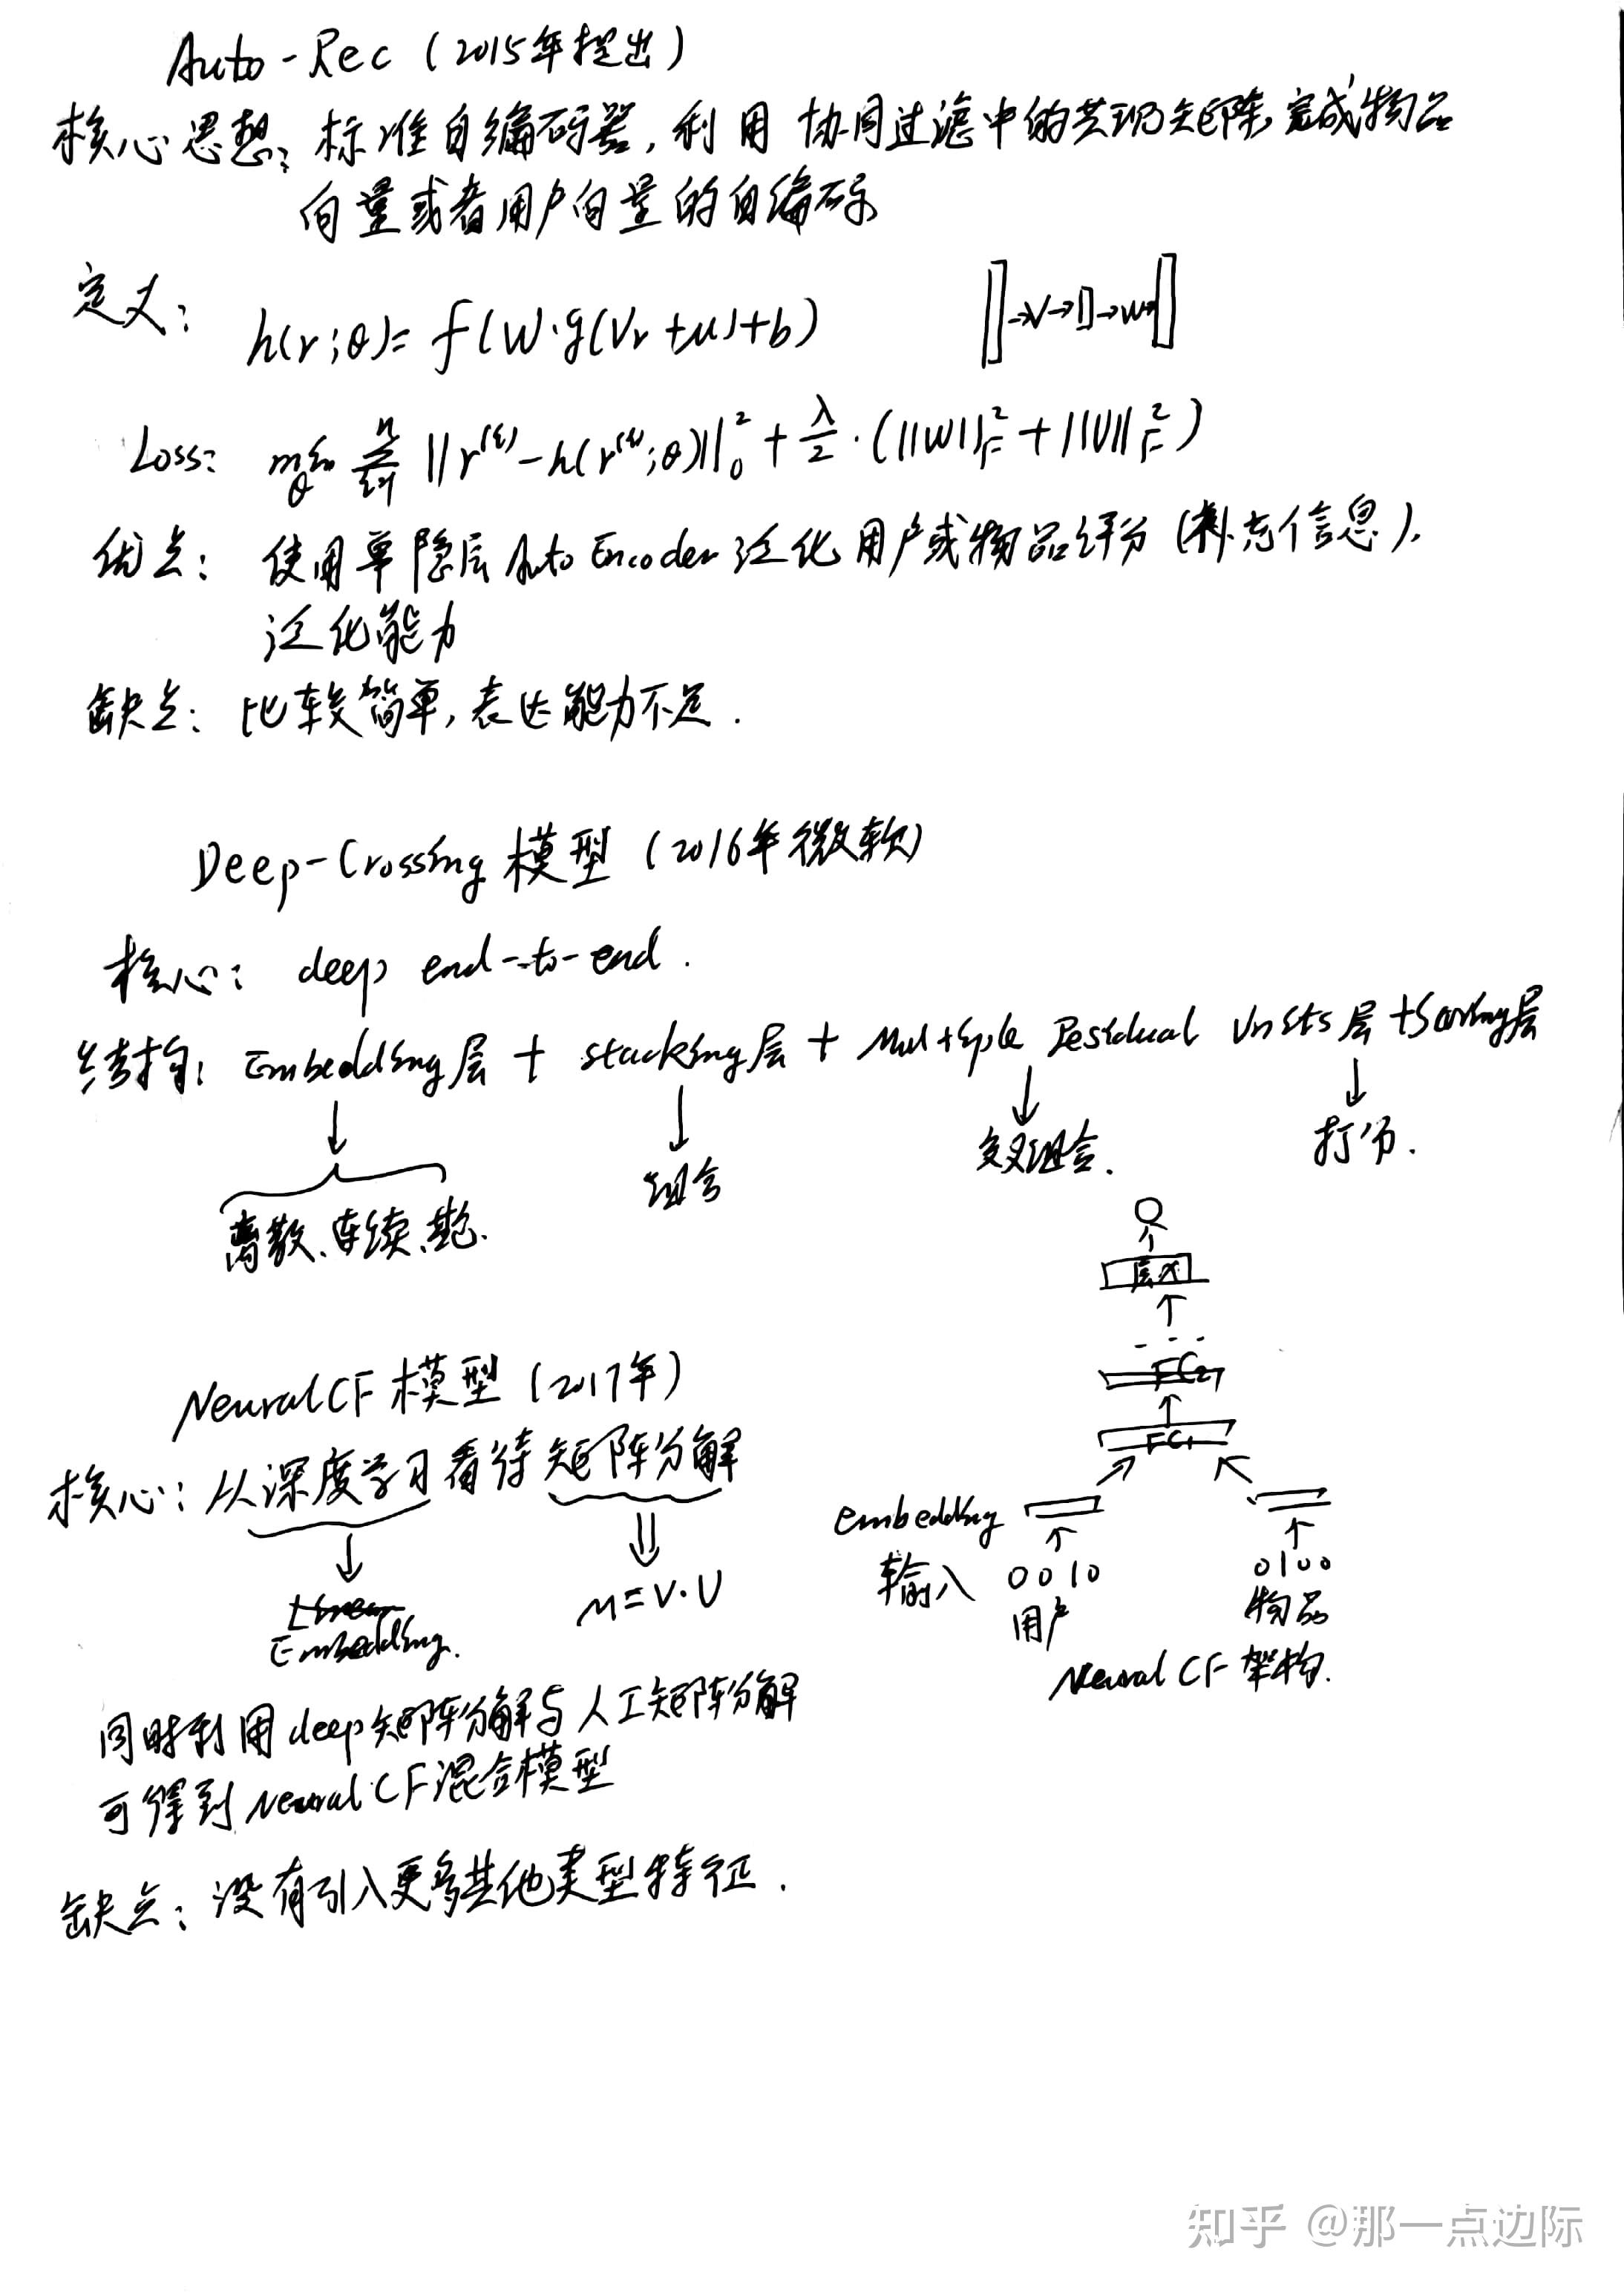 Auto-Rec (2015年提出)
核心思想: 标准自编码器, 利用 协同过滤中的共现矩阵, 完成物品
向量或者用户向量的自编码
定义: h(r;θ)= f(W·g(Vr+μ)+b) →V→ →W→
Loss: min θ Σ i=1 n ||r⁽ⁱ⁾-h(r⁽ⁱ⁾;θ)||²₀ + λ/2 · (||W||²F + ||V||²F)
优点: 使用单隐层AutoEncoder泛化用户或物品评分(补充信息),
泛化能力
缺点: 比较简单, 表达能力不足.
Deep-Crossing 模型 (2016年微软)
核心: deep end-to-end.
结构: Embedding层 + stacking层 + Multiple Residual Units层 + Scoring层
组合
交叉组合.
打分.
离散、连续、
NeuralCF 模型 (2017年)
核心: 从深度学习看待矩阵分解
Embedding.
M=V·U
同时利用deep矩阵分解与人工矩阵分解
可得到NeuralCF混合模型
缺点: 没有引入更多其他类型特征.
层X
...
FC2
FC1
embedding
输入 0010 0100
用户 物品
Neural CF 架构.
知乎 @那一点边际